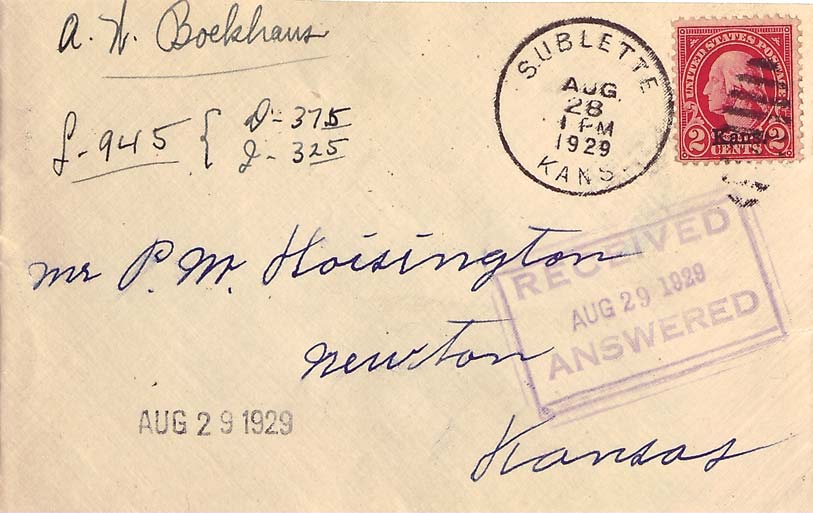 A. W. Boekhaus
L-945 { D-375
J-325
SUBLETTE
AUG
28
1 PM
1929
KANS.
UNITED STATES POSTAGE
Kans.
2 CENTS 2
RECEIVED
AUG 29 1929
ANSWERED
Mr P. M. Hoisington
Newton
Kansas
AUG 29 1929